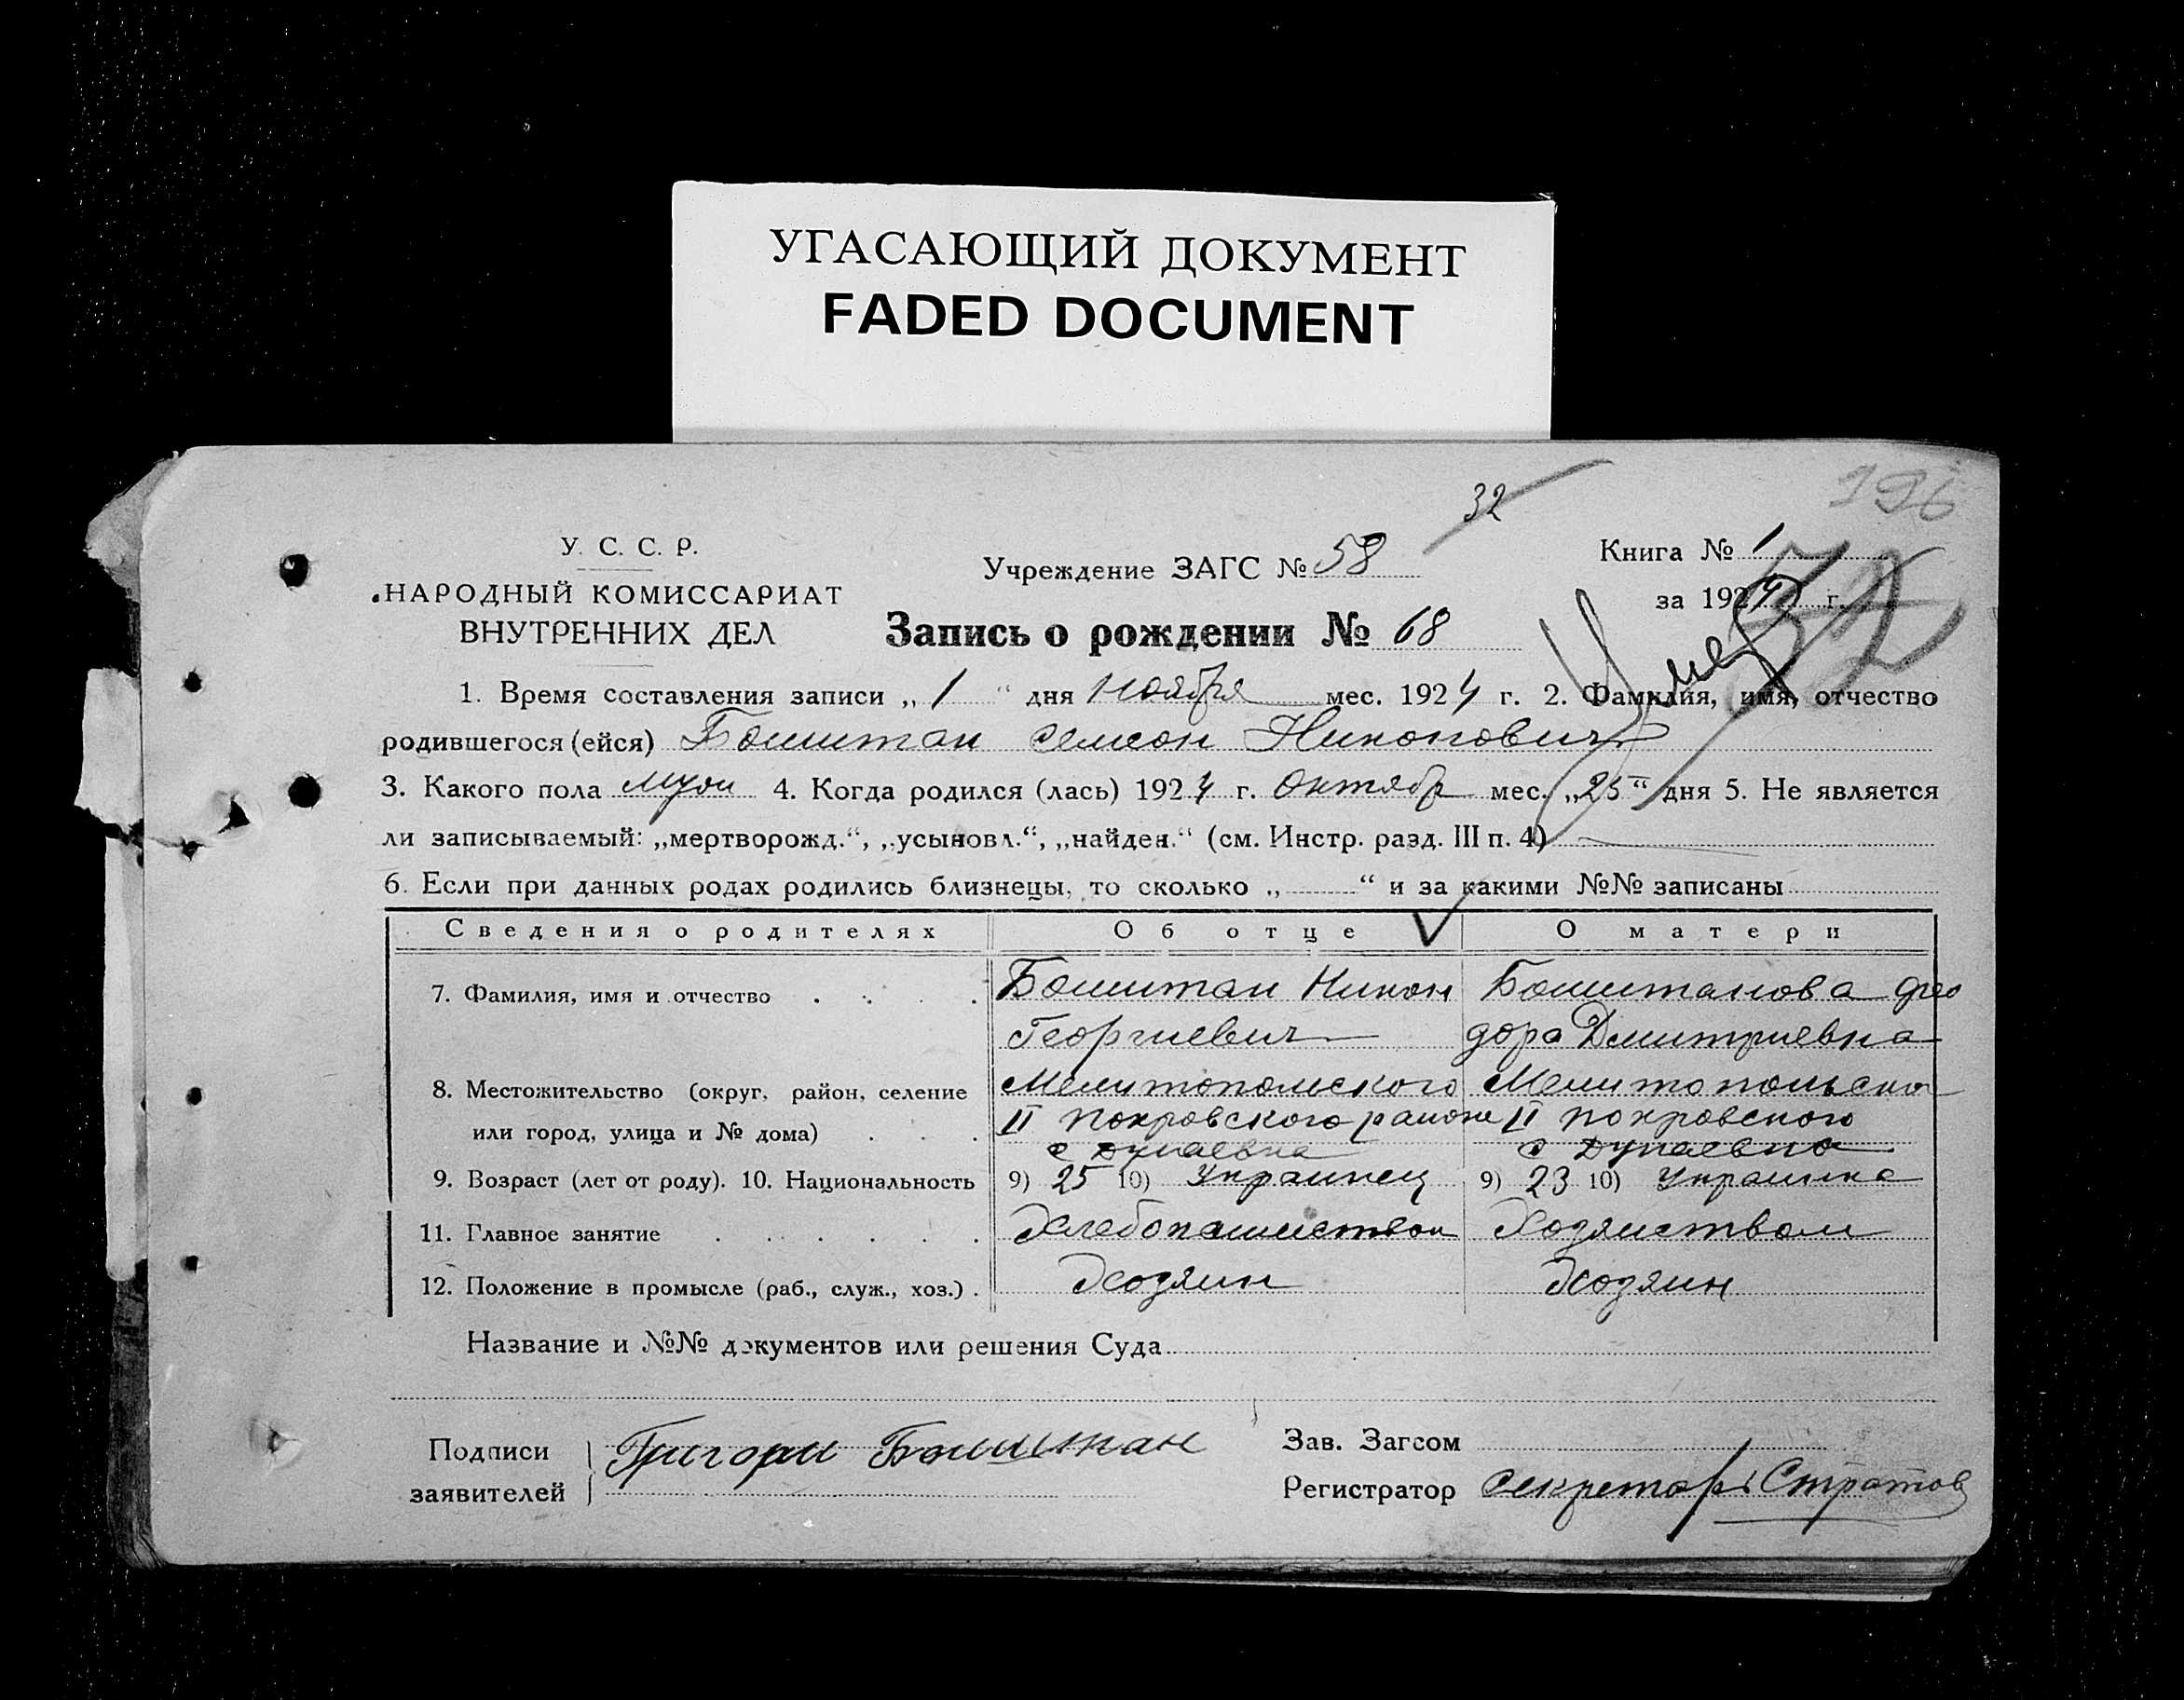 УГАСАЮЩИЙ ДОКУМЕНТ
FADED DOCUMENT
196
32
У. С. С. Р.
НАРОДНЫЙ КОМИССАРИАТ
ВНУТРЕННИХ ДЕЛ
Учреждение ЗАГС № 58
Запись о рождении № 68
Книга № 1
за 1924 г.
32
Умер
1. Время составления записи „ 1 “ дня ноября мес. 1924 г. 2. Фамилия, имя, отчество
родившегося (ейся) Башштан Семеон Никонович
3. Какого пола муж 4. Когда родился (лась) 1924 г. Октябр мес. „25“ дня 5. Не является
ли записываемый: „мертворожд.“, „усыновл.“, „найден.“ (см. Инстр. разд. III п. 4)
6. Если при данных родах родились близнецы, то сколько „ “ и за какими №№ записаны
Сведения о родителях Об отце О матери
7. Фамилия, имя и отчество Башштан Никон Башштанова Фео
Георгиевич дора Дмитриевна
8. Местожительство (округ, район, селение Мелитопомского Мелитопольско
или город, улица и № дома) II Покровского района II Покровского
с Дунаевка с Дунаевка
9. Возраст (лет от роду). 10. Национальность 9) 25 10) Украинец 9) 23 10) Украинка
11. Главное занятие Хлебопашеством Хозяиством
12. Положение в промысле (раб., служ., хоз.) Хозяин Хозяин
Название и №№ документов или решения Суда
Подписи Григори Башштан Зав. Загсом
заявителей Регистратор Секретарь Стратов